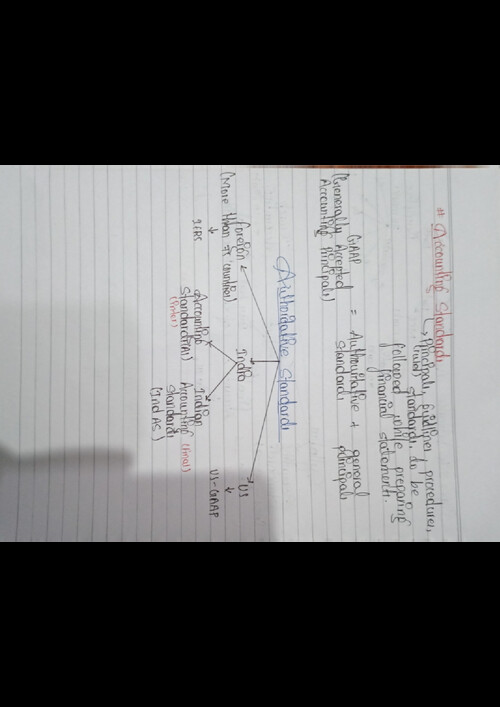 Accounting Standards
↳ Principals, guidelines, procedures,
(rules) standards, to be
followed while preparing
financial statements.
GAAP = Authoritative + general
(Generally Accepted standards principals
Accounting Principals)
Authoritative Standards
Foreign India US
(More than countries) ↓
↓ US-GAAP
IFRS
Accounting Indian
Standards (AS) Accounting (final)
(Inter) Standards
(Ind AS)